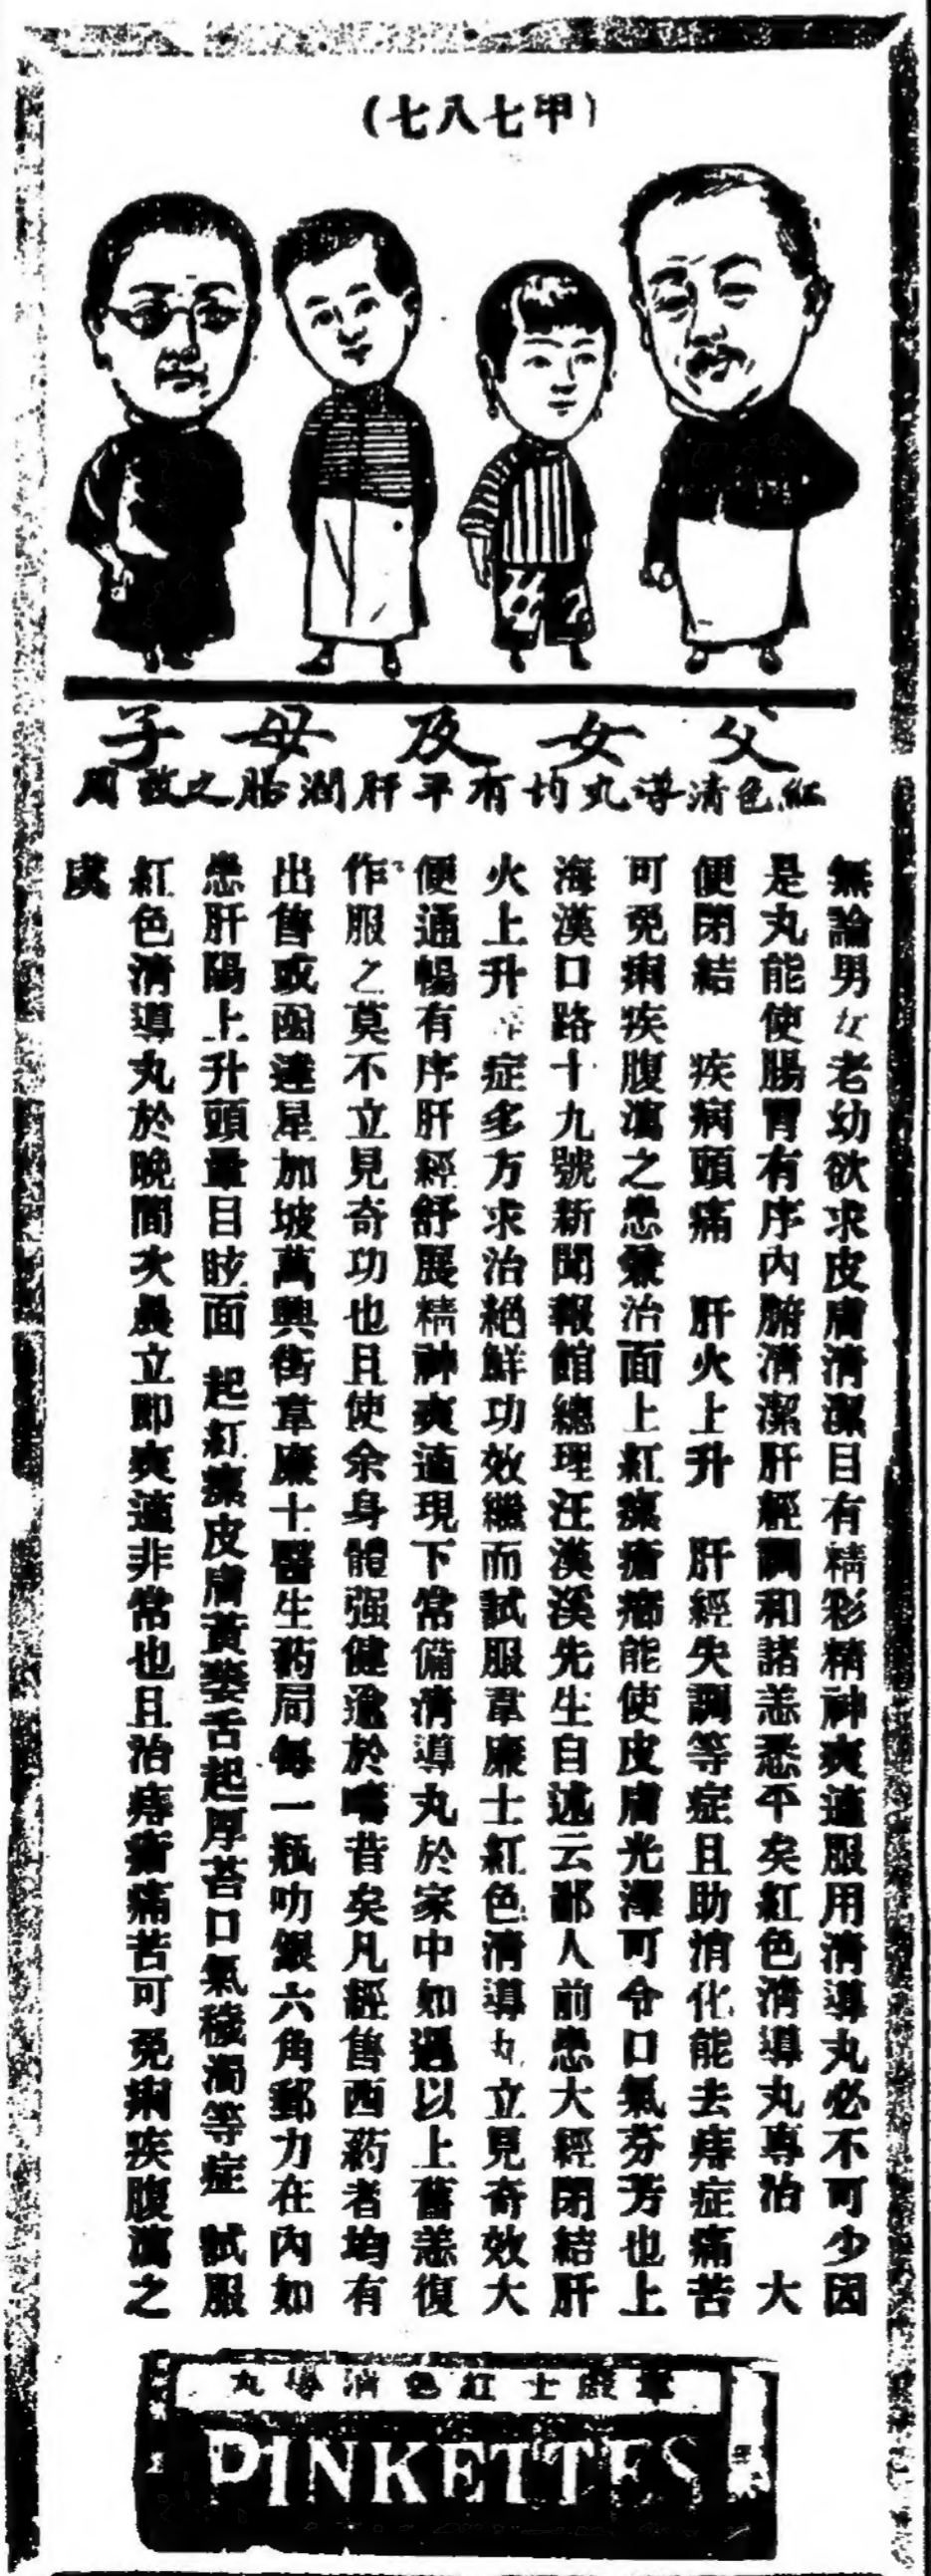 （甲七八七）
父女及母子
紅色清導丸均有平肝潤腸之效用
無論男女老幼欲求皮膚清潔目有精彩精神爽適服用清導丸必不可少因
是丸能使腸胃有序內腑清潔肝經調和諸恙悉平矣紅色清導丸專治 大
便閉結 疾病頭痛 肝火上升 肝經失調等症且助消化能去痔症痛苦
可免痢疾腹瀉之患兼治面上紅瘰瘡癤能使皮膚光澤可令口氣芬芳也上
海漢口路十九號新聞報館總理汪漢溪先生自述云鄙人前患大經閉結肝
火上升 症多方求治絕鮮功效繼而試服韋廉士紅色清導丸立見奇效大
便通暢有序肝經舒展精神爽適現下常備清導丸於家中如遇以上舊恙復
作服之莫不立見奇功也且使余身體强健逾於疇昔矣凡經售西药者均有
出售或函達星加坡萬興街韋廉士醫生药局每一瓶叻銀六角郵力在內如
患肝陽上升頭暈目眩面 起紅瘰皮膚黃萎舌起厚苔口氣穢濁等症 試服
紅色清導丸於晚間次晨立即爽適非常也且治痔瘡痛苦可免痢疾腹瀉之
虞
韋廉士紅色清導丸
PINKETTES